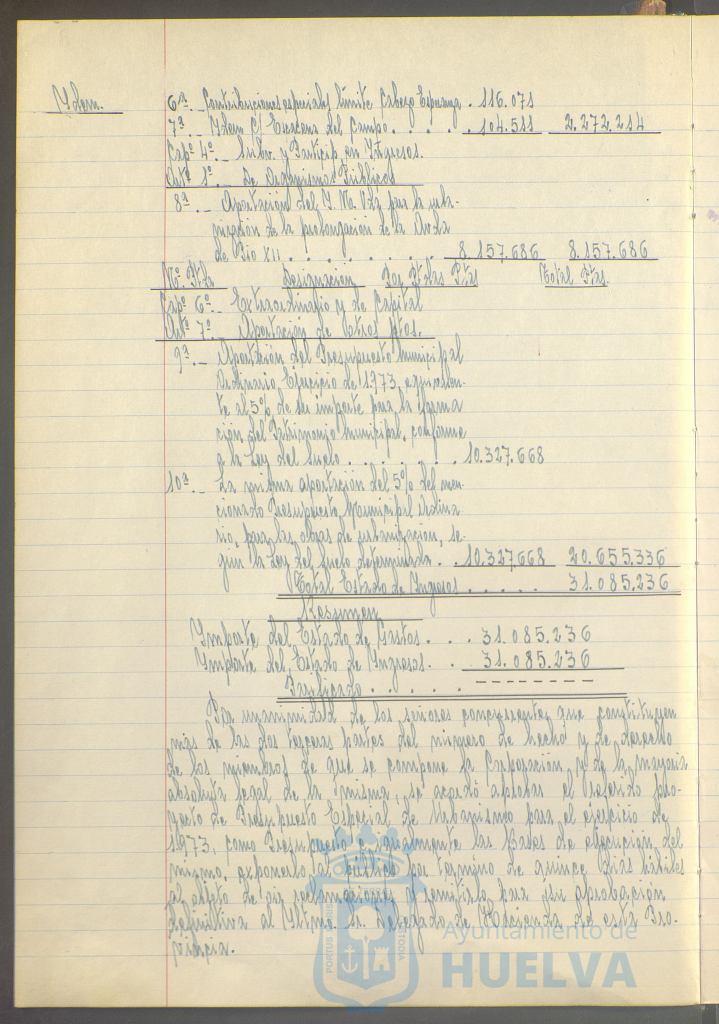 Idem.
6ª.- Contribuciones especiales límite Cabezo Esperanza . 116.071
7ª.- Idem C/ Encarna del Campo . . . . 104.511 2.272.214
Capº 4º.- Subv. y Particip. en Ingresos.
Artº 1º.- De Organismos Públicos
8ª.- Aportación del I.N. Vda para la urba-
nización de la prolongación de la Avda
de Pio XII . . . . . . . . . 8.157.686 8.157.686
Nº Ptda Designación Por Ptdas Ptas Total Ptas.
Capº 6º.- Extraordinario y de Capital
Artº 7º.- Aportación de otros Ptos.
9ª.- Aportación del Presupuesto Municipal
Ordinario, Ejercicio de 1.973, equivalen-
te al 5% de su importe para la forma
ción del Patrimonio Municipal, conforme
a la Ley del Suelo . . . . . . 10.327.668
10ª.- La misma aportación del 5% del men-
cionado Presupuesto Municipal Ordina
rio, para las obras de urbanización, se-
gún la Ley del Suelo determinada . . 10.327.668 20.655.336
Total Estado de Ingresos . . . . . 31.085.236
Resumen
Importe del Estado de Gastos . . . 31.085.236
Importe del Estado de Ingresos . . 31.085.236
. . . . . . - - - - - - - - - -
Por unanimidad de los señores concurrentes, que constituyen
más de las dos terceras partes del número de hecho y de derecho
de los miembros de que se compone la Corporación, y de la mayoría
absoluta legal de la misma, se acordó aprobar el referido pro-
yecto de Presupuesto Especial de Urbanismo para el ejercicio de
1.973, como Presupuesto e igualmente las Bases de ejecución del
mismo, exponerlo al público por término de quince días hábiles
al objeto de oir reclamaciones y remitirlo para su aprobación
definitiva al Iltmo. Sr. Delegado de Hacienda de esta Pro-
vincia.
PORTUS MARIS
CUSTODIA
Ayuntamiento de
HUELVA